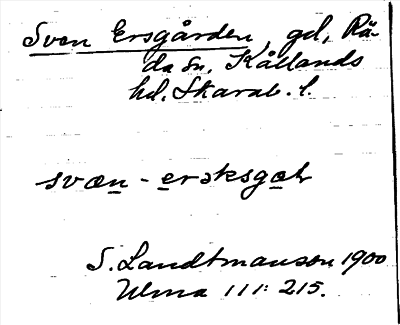 Sven Ersgården, gd, Rå-
da sn, Kållands
hd. Skarab. l.
svæn - erəksgaƚ
S. Landtmanson 1900
Ulma 111: 215.